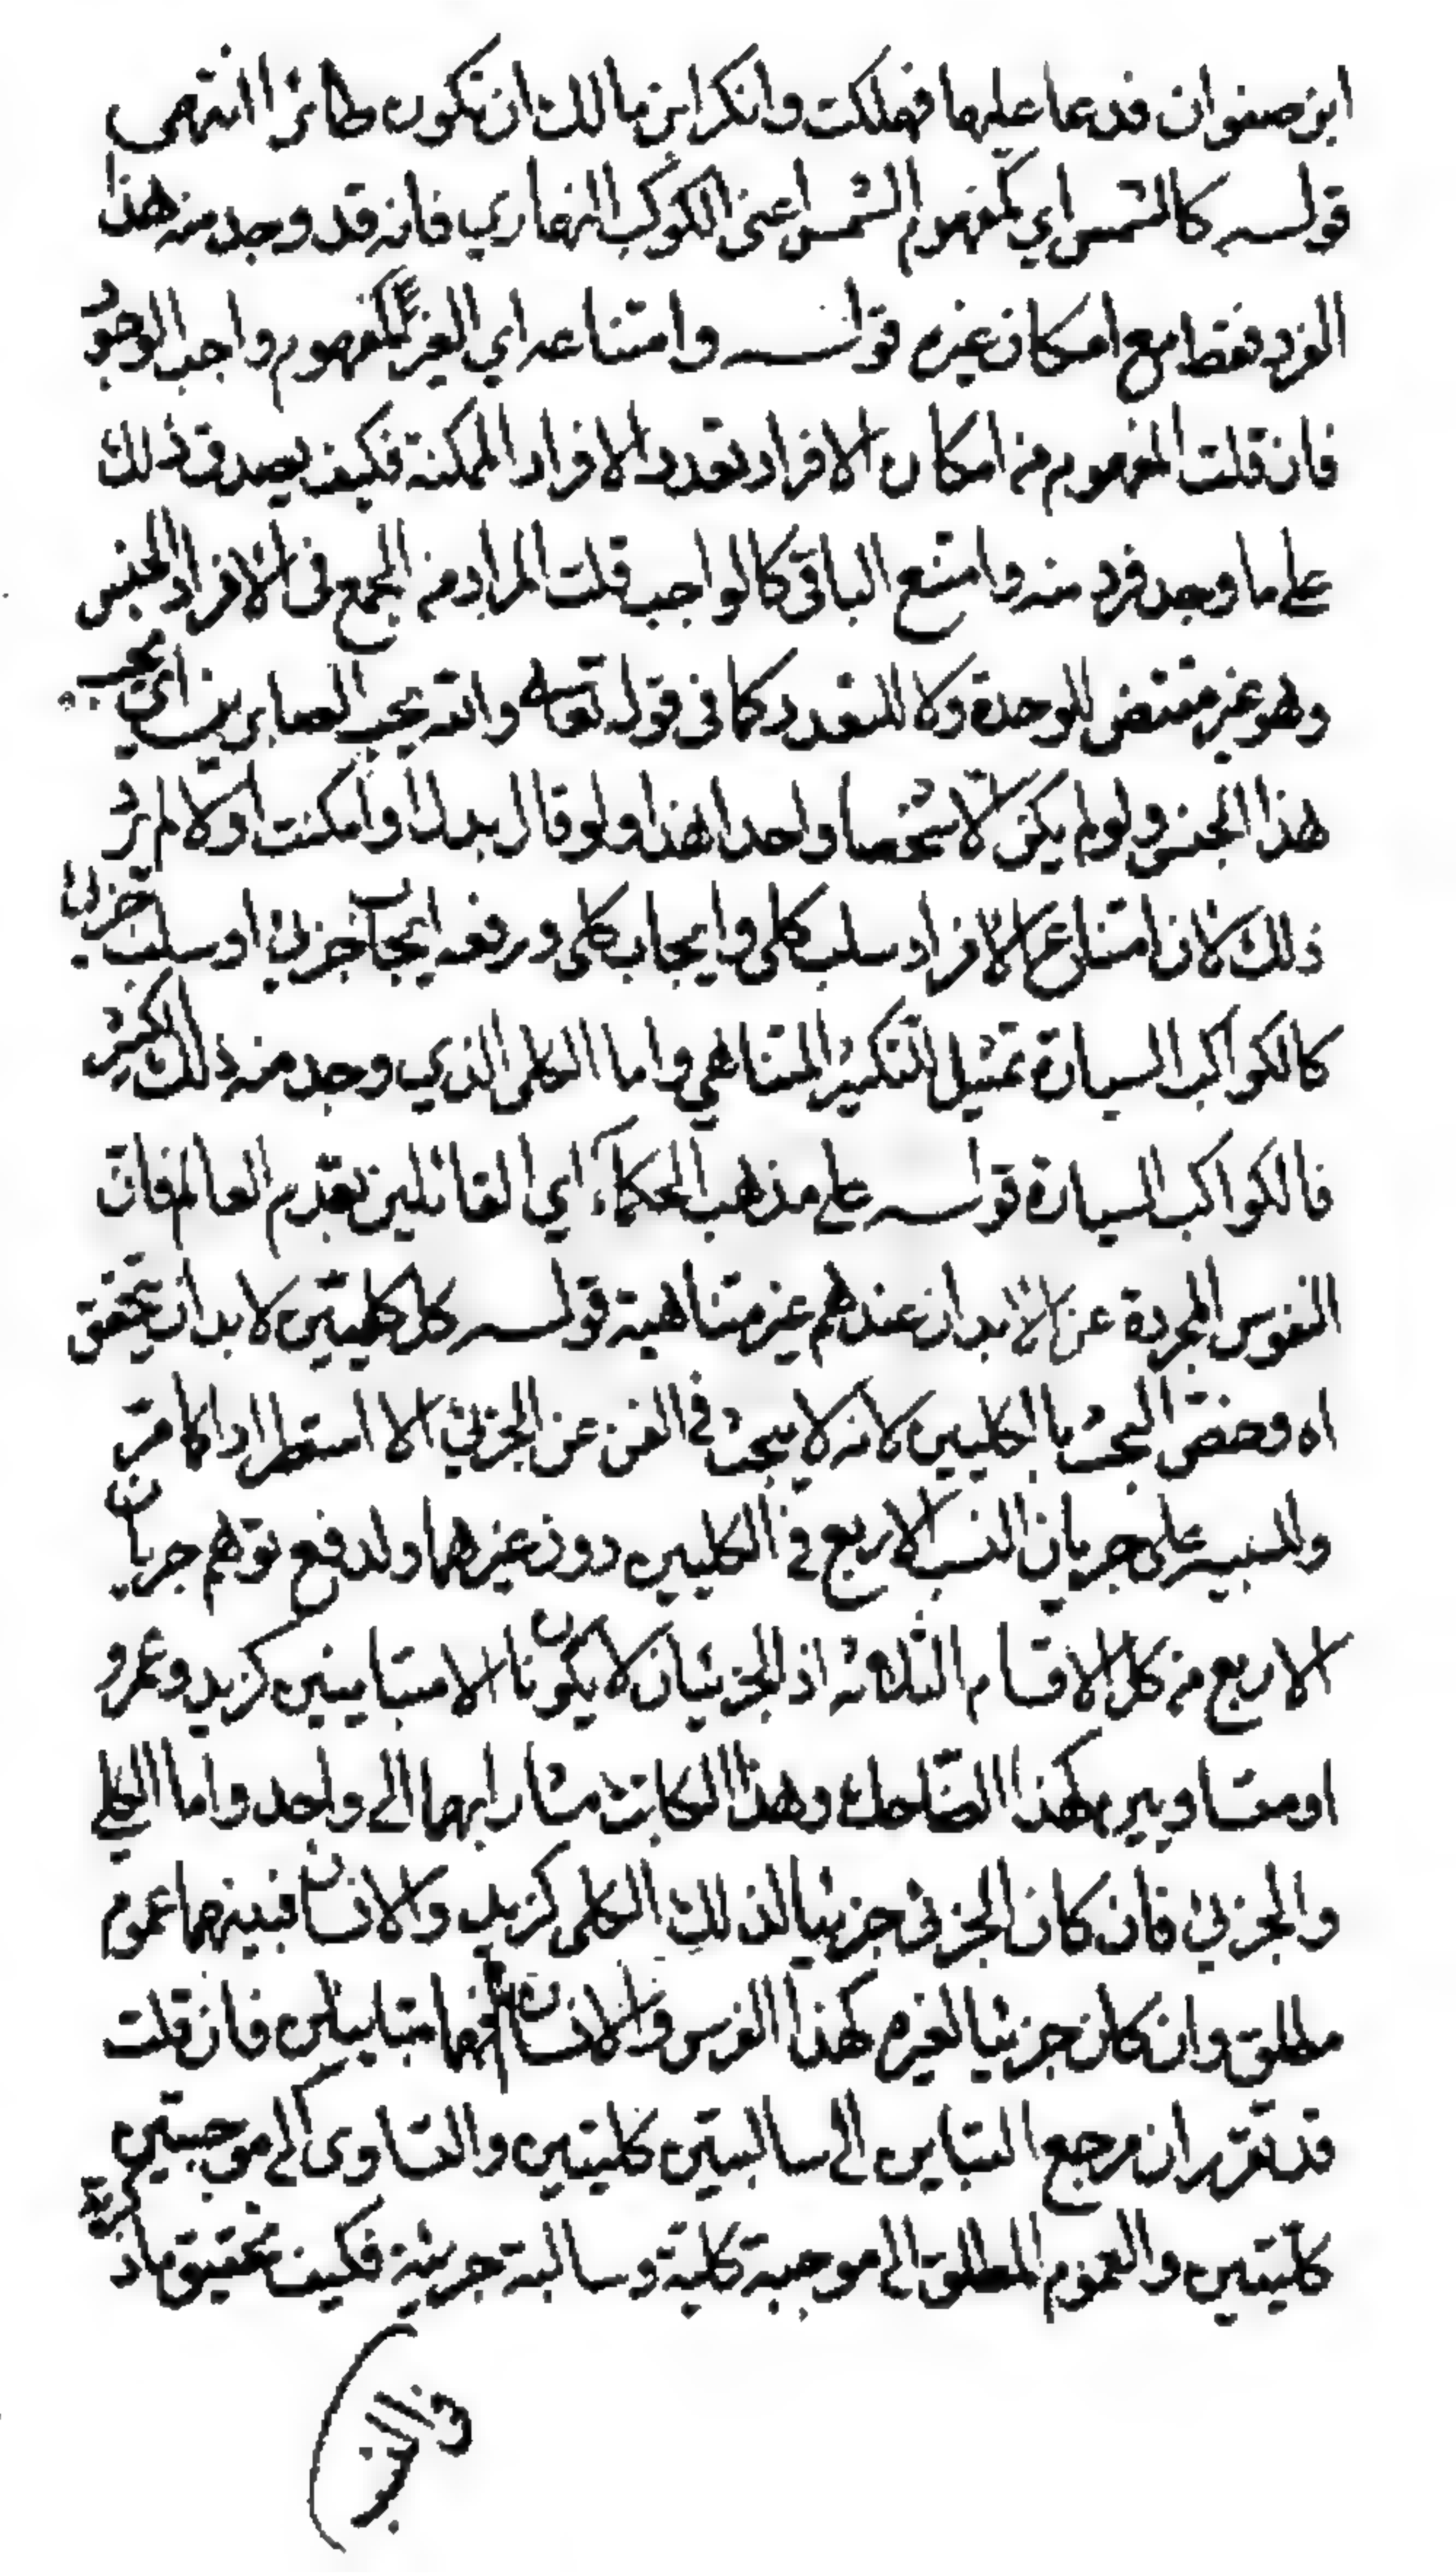 ابن صفوان فدعا عليها فهلكت وانكر ابن مالك ان تكون طائرا انتهى
قوله كالشمس اي كمفهوم الشمس اعنى الكوكب النهاري فانه قد وجد منه هذا
الفرد فقط مع امكان غيره قوله وامتناعه اي الغير كمفهوم واجب الوجود
فان قلت المفهوم من امكان الافراد تعدد الافراد الممكنة فكيف يصدق ذلك
على ما وجد فرد منه وامتنع الباقى كالواجب قلت المراد من الجمع فى الافراد الجنس
وهو غير مقتض للوحدة ولا للتعدد كما فى قوله تعالى والله يحب الصابرين اي يحب
هذا الجنس ولو لم يكن الا شخصا واحدا هذا ولو قال بدل او امكنت اولا لم يرد
ذلك لان امتناع الافراد سلب كلى وايجاب كلى ورفعه ايجاب جزئى او سلب جزئى
كالكواكب السيارة تمثيل للتكثير المتناهي واما الكلى الذي وجد منه ذلك الكثير
فالكواكب السيارة قوله على مذهب الحكماء اي القائلين بقدم العالم فان
النفوس المجردة عن الابدان عندهم غير متناهية قوله كل كليتين لا بد ان يتحقق
اه وخص البحث بالكليين لانه لا يبحث في الفن عن الجزئي الا استطرادا كما مر
وللتنبيه على جريان النسب الاربع في الكليين دون غيرهما ولدفع توهم جريان
الاربع من كل الاقسام الثلاثه اذ الجزئيان لا يكونان الا متباينين كزيد وعمرو
او متساويين كهذا الضاحك وهذا الكاتب مشارا بهما الى واحد واما الكلي
والجزئي فان كان الجزئى جزئيا لذلك الكلى كزيد والانسان فبينهما عموم
مطلق وان كان جزئيا لغيره كهذا الفرس والانسان فهما متباينين فان قلت
قد تقرر ان مرجع التباين الى سالبتين كليتين والتساوى الى موجبتين
كليتين والعموم المطلق الى موجبة كلية وسالبة جزئية فكيف تحقيق ما ذكرته